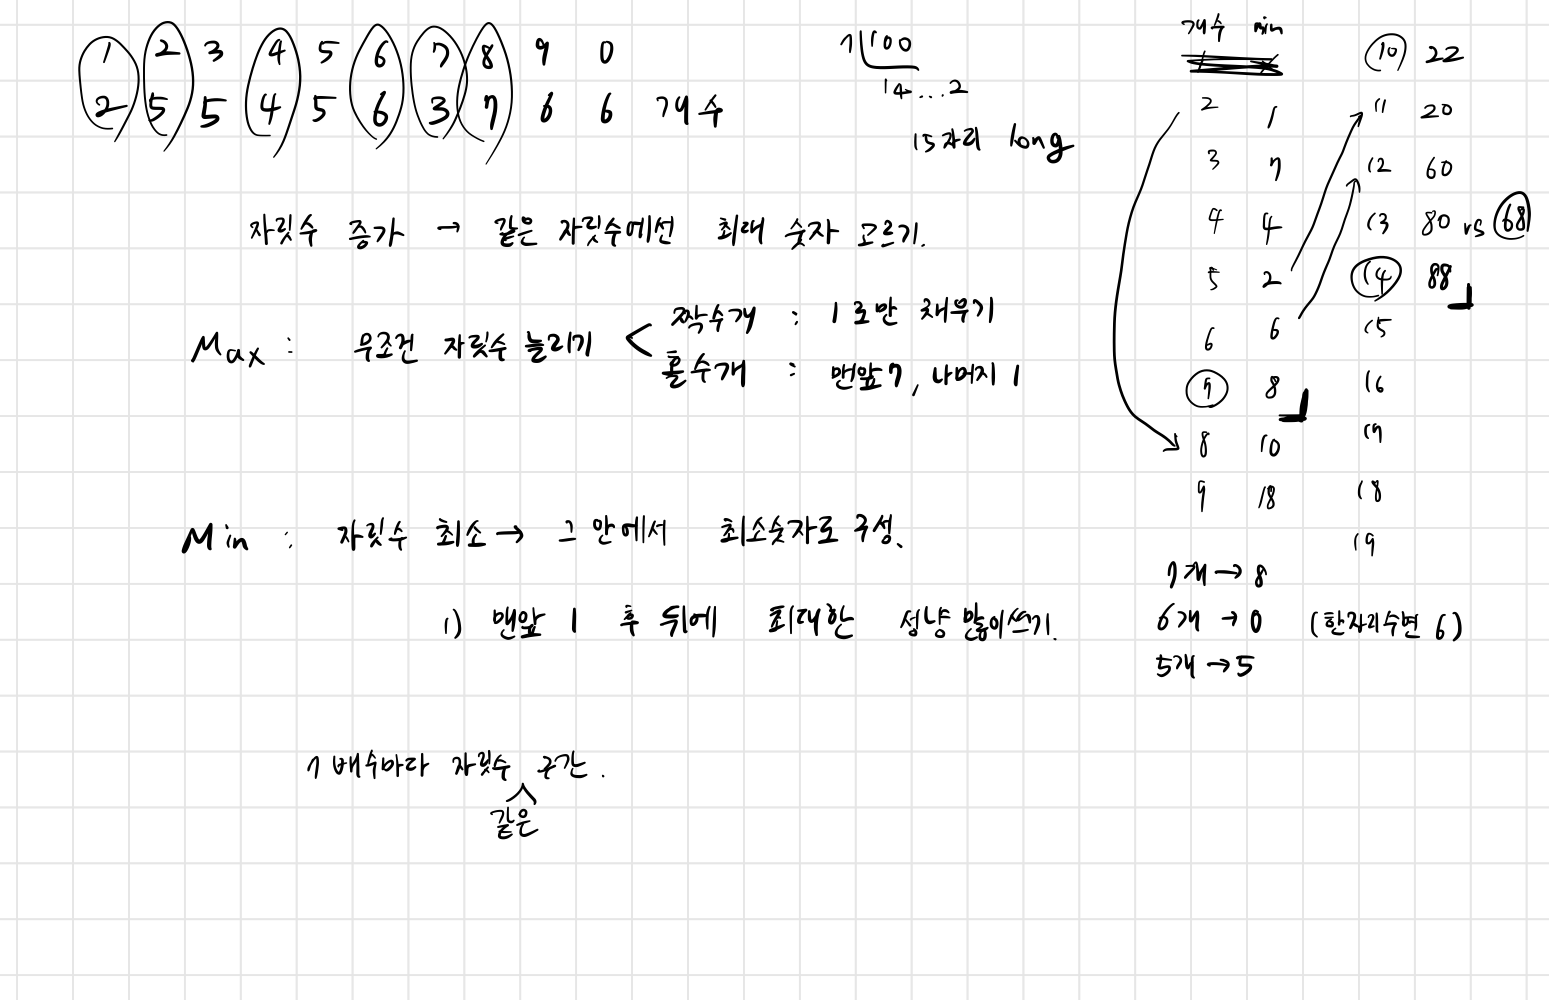 1 2 3 4 5 6 7 8 9 0
2 5 5 4 5 6 3 7 6 6 개수
7 100
14...2
15자리 long
자릿수 증가 → 같은 자릿수에선 최대 숫자 고르기.
Max : 무조건 자릿수 늘리기
짝수개 : 1로만 채우기
홀수개 : 맨앞7, 나머지 1
Min : 자릿수 최소 → 그 안에서 최소숫자로 구성.
1) 맨앞 1 후 뒤에 최대한 성냥 많이쓰기.
7배수마다 자릿수 구간.
같은
개수 min
2 1
3 7
4 4
5 2
6 6
7 8
8 10
9 18
10 22
11 20
12 60
13 80 vs 68
14 88
15
16
17
18
19
7개 → 8
6개 → 0 (한자리수면 6)
5개 → 5